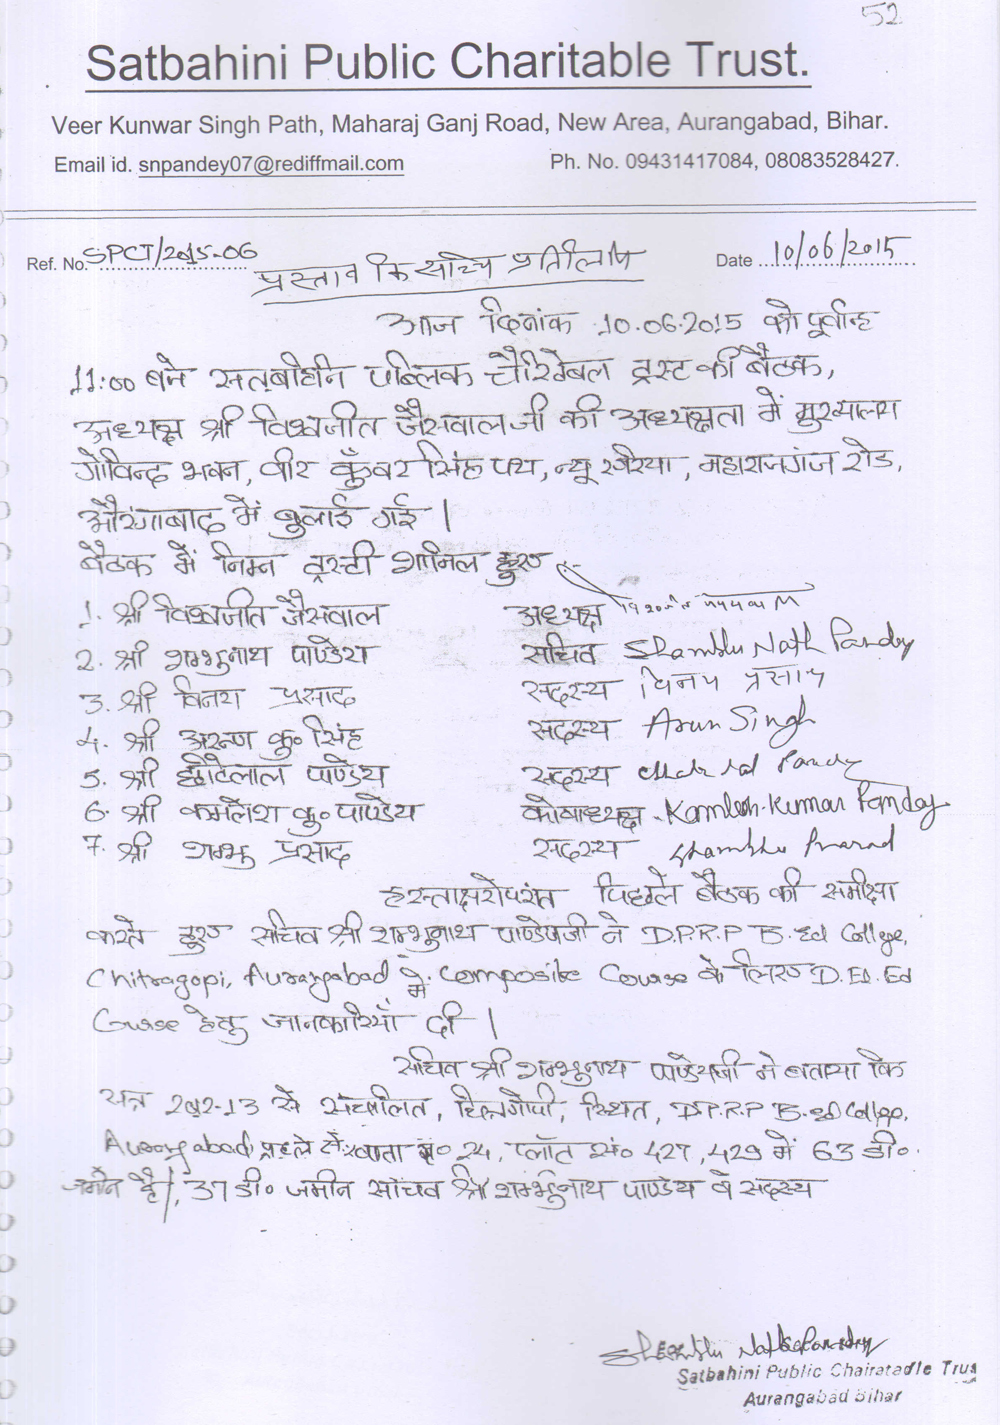 52
Satbahini Public Charitable Trust.
Veer Kunwar Singh Path, Maharaj Ganj Road, New Area, Aurangabad, Bihar.
Email id. snpandey07@rediffmail.com Ph. No. 09431417084, 08083528427.
Ref. No. SPCT/2015-06 Date 10/06/2015
प्रस्ताव कि सच्चि प्रतीलिपि
आज दिनांक 10.06.2015 को पूर्वान्ह
11:00 बजे सतबहीनि पब्लिक चैरिटेबल ट्रस्ट की बैठक,
अध्यक्ष श्री विश्वजीत जैसवाल जी की अध्यक्षता में मुख्यालय
गोविन्द भवन, वीर कुँवर सिंह पथ, न्यू एरिया, महाराजगंज रोड,
औरंगाबाद में बुलाई गई |
बैठक में निम्न ट्रस्टी शामिल हुए
1. श्री विश्वजीत जैसवाल अध्यक्ष
2. श्री शम्भुनाथ पाण्डेय सचिव Shambhu Nath Pandey
3. श्री विनय प्रसाद सदस्य विनय प्रसाद
4. श्री अरुण कु० सिंह सदस्य Arun Singh
5. श्री छोटेलाल पाण्डेय सदस्य
6. श्री कमलेश कु० पाण्डेय कोषाध्यक्ष - Kamlesh Kumar Pandey
7. श्री शम्भु प्रसाद सदस्य Shambhu Prasad
हस्ताक्षरोपरांत पिछले बैठक की समीक्षा
करते हुए सचिव श्री शम्भुनाथ पाण्डेयजी ने D.P.R.P B.Ed College,
Chitragopi, Aurangabad में Composite Course के लिए D.El.Ed
Course हेतु जानकारियाँ दी |
सचिव श्री शम्भुनाथ पाण्डेयजी ने बताया कि
सत्र 2012-13 से संचालित, चित्रगोपी, स्थित, D.P.R.P B.Ed College,
Aurangabad पहले से खाता सं० 24, प्लॉट सं० 427, 429 में 63 डी०
जमीन है|, 37 डी० जमीन सचिव श्री शम्भुनाथ पाण्डेय व सदस्य
Shambhu Nath Pandey
Satbahini Public Chairatadle Trus
Aurangabad Bihar